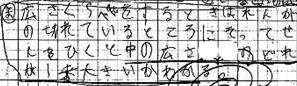 広さくらべをするときはれんが
の切れているところにそってせ
んをひくと中の広さ のどれ
大きいかわかる